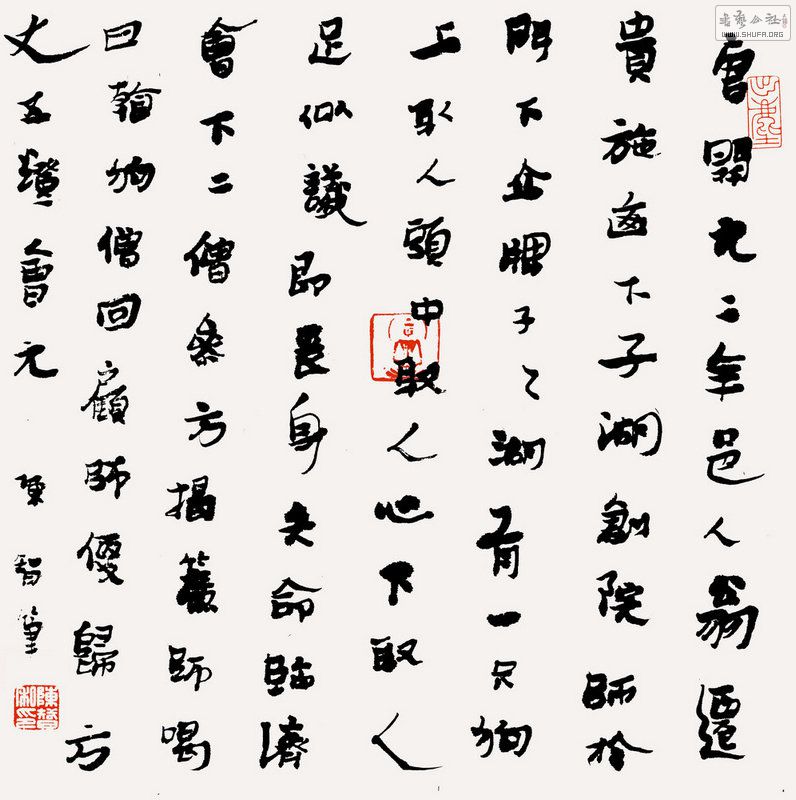 唐開元二年邑人翁遷
貴施下子湖創院師於
門下立牌子〻湖有一只狗
上取人頭中取人心下取人
足似議即喪身失命臨濟
會下二僧參方揭簾師喝
曰看狗僧回顧師便歸方
丈五燈會元 陳智筆
書藝公社
WWW.SHUFA.ORG